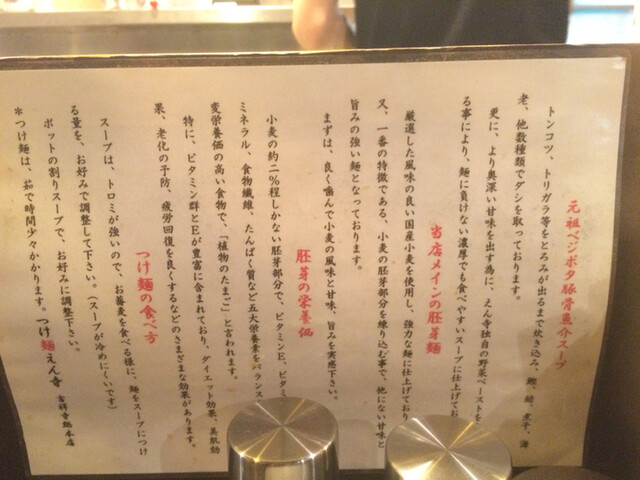 元祖ベジポタ豚骨魚介スープ
トンコツ、トリガラ等をとろみが出るまで炊き込み、鰹、鯖、煮干、海
老、他数種類でダシを取っております。
更に、より奥深い甘味を出す為に、えん寺独自の野菜ペーストを
る事により、麺に負けない濃厚でも食べやすいスープに仕上げてお
当店メインの胚芽麺
厳選した風味の良い国産小麦を使用し、強力な麺に仕上げており
又、一番の特徴である、小麦の胚芽部分を練り込む事で、他にない甘味と
旨みの強い麺となっております。
まずは、良く噛んで小麦の風味と甘味、旨みを実感下さい。
胚芽の栄養価
小麦の約二%程しかない胚芽部分で、ビタミンE、ビタミ
ミネラル、食物繊維、たんぱく質など五大栄養素をバランス
変栄養価の高い食物で、「植物のたまご」と言われます。
特に、ビタミン群とEが豊富に含まれており、ダイエット効果、美肌効
果、老化の予防、疲労回復を良くするなどのさまざまな効果があります。
つけ麺の食べ方
スープは、トロミが強いので、お蕎麦を食べる様に、麺をスープにつけ
る量を、お好みで調整して下さい。(スープが冷めにくいです)
ポットの割りスープで、お好みに調整下さい。
*つけ麺は、茹で時間少々かかります。つけ麺えん寺 吉祥寺総本店